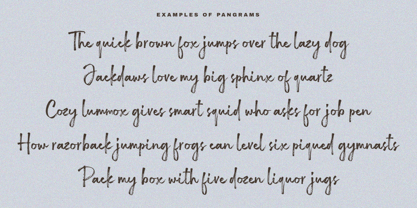 EXAMPLES OF PANGRAMS
The quick brown fox jumps over the lazy dog
Jackdaws love my big sphinx of quartz
Cozy lummox gives smart squid who asks for job pen
How razorback jumping frogs can level six piqued gymnasts
Pack my box with five dozen liquor jugs